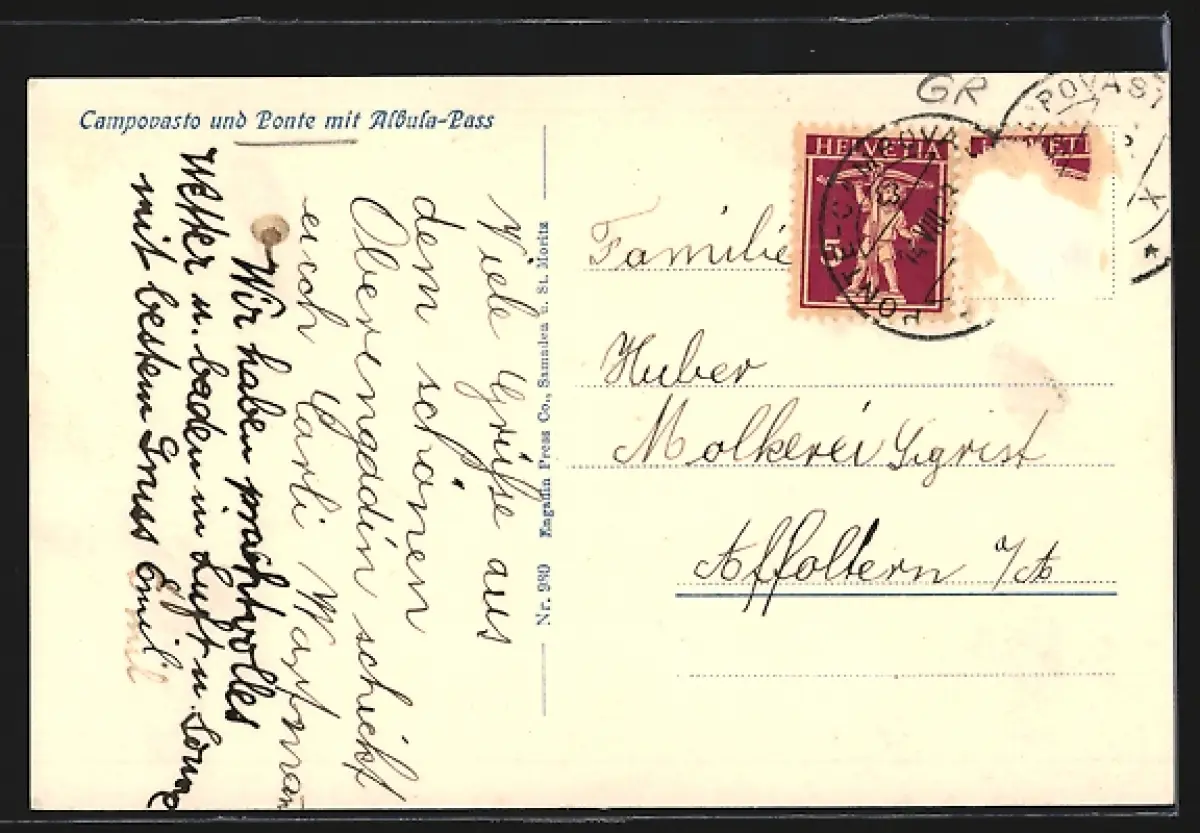 Campovasto und Ponte mit Albula-Pass
GR
HELVETIA
Viele Grüsse aus
dem schönen
Oberengadin schickt
euch Carli Hartmann
Wir haben prachtvolles
Wetter u. baden in Luft u. Sonne
mit bestem Gruss Emil
Nr. 980 Engadin Press Co., Samaden u. St. Moritz
Familie
Huber
Molkerei Sigrist
Affoltern a/A